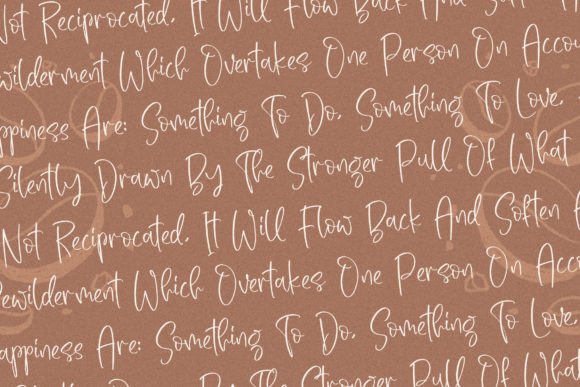 Not Reciprocated, It Will Flow Back And
ewilderment Which Overtakes One Person On Accou
ppiness Are: Something To Do, Something To Love,
Silently Drawn By The Stronger Pull Of What
Not Reciprocated, It Will Flow Back And Soften
ewilderment Which Overtakes One Person On Acco
appiness Are: Something To Do, Something To Love,
Drawn By The Stronger Pull Of What